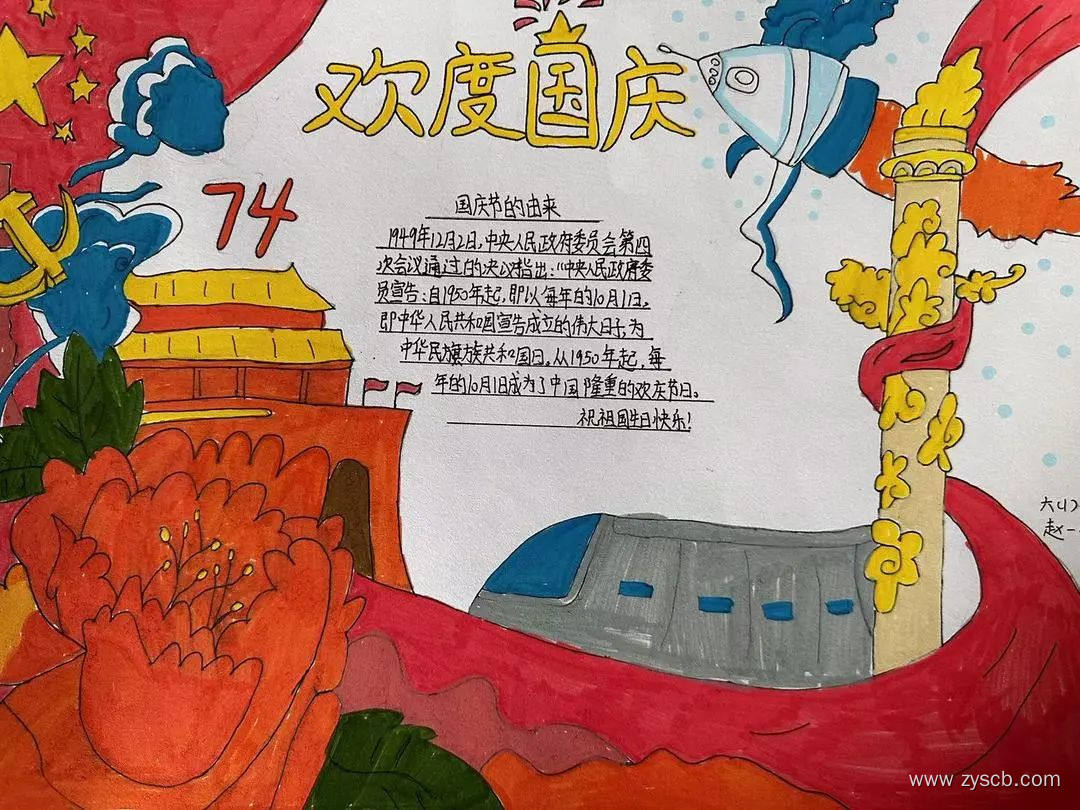 欢度国庆
74
国庆节的由来
1949年12月2日,中央人民政府委员会第四
次会议通过的决议指出:"中央人民政府委
员宣告:自1950年起,即以每年的10月1日,
即中华人民共和国宣告成立的伟大日子,为
中华民旗族共和国日。从1950年起,每
年的10月1日成为了中国隆重的欢庆节日。
祝祖国生日快乐!
六(1)
赵一
www.zyscb.com